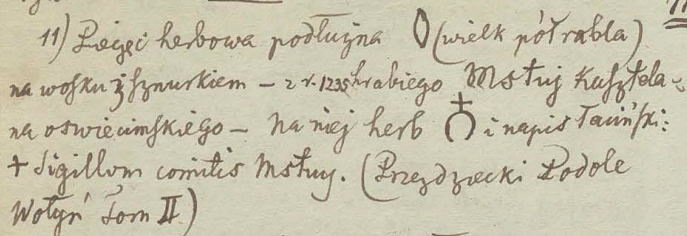 11) Pieczęć herbowa podłużna (wielk pół rubla)
na wosku z sznurkiem – z r. 1235 hrabiego Mstuj Kasztela-
na oswiecimskiego – na niej herb i napis łaciński:
+ Sigillum comitis Mstuy. (Przezdziecki Podole
Wołyń Tom II)